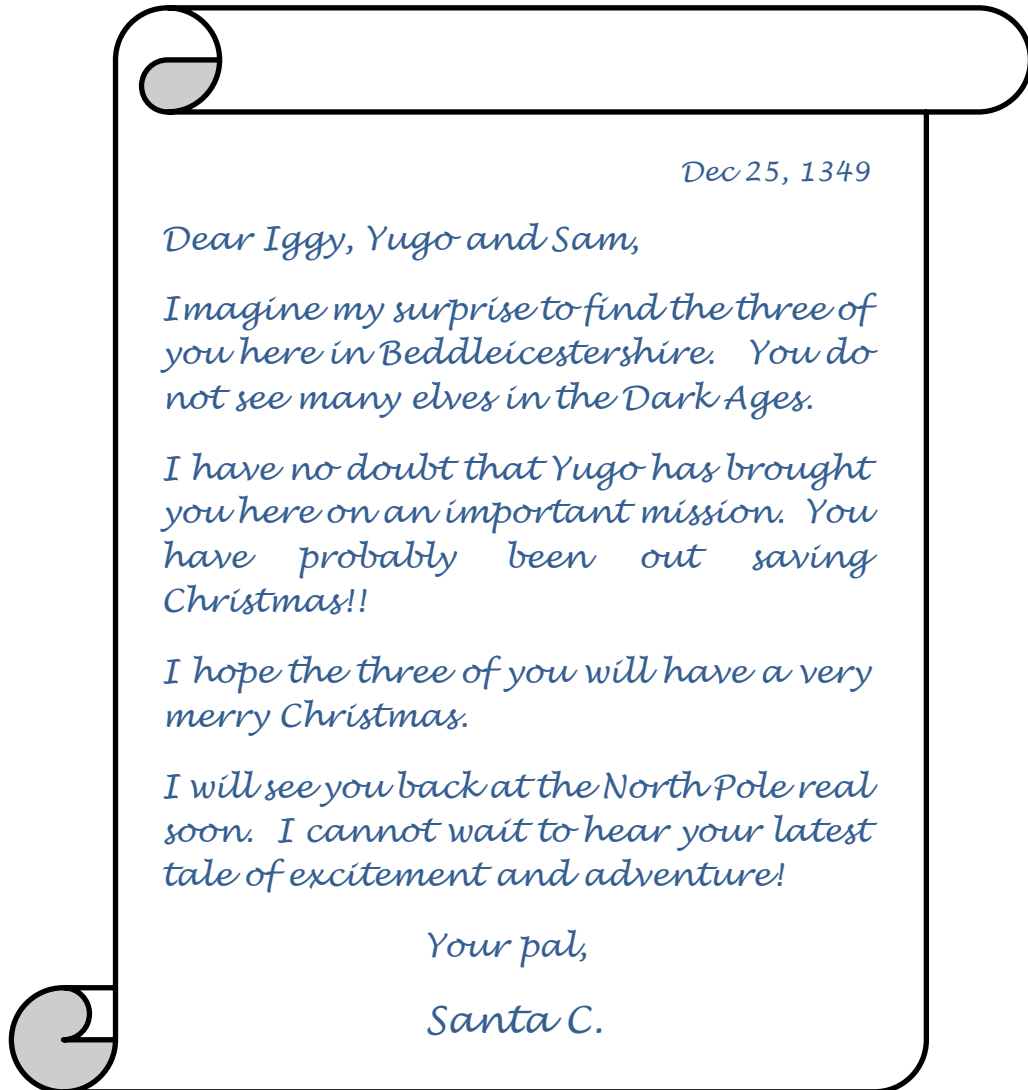 Dec 25, 1349
Dear Iggy, Yugo and Sam,
Imagine my surprise to find the three of
you here in Beddleicestershire. You do
not see many elves in the Dark Ages.
I have no doubt that Yugo has brought
you here on an important mission. You
have probably been out saving
Christmas!!
I hope the three of you will have a very
merry Christmas.
I will see you back at the North Pole real
soon. I cannot wait to hear your latest
tale of excitement and adventure!
Your pal,
Santa C.